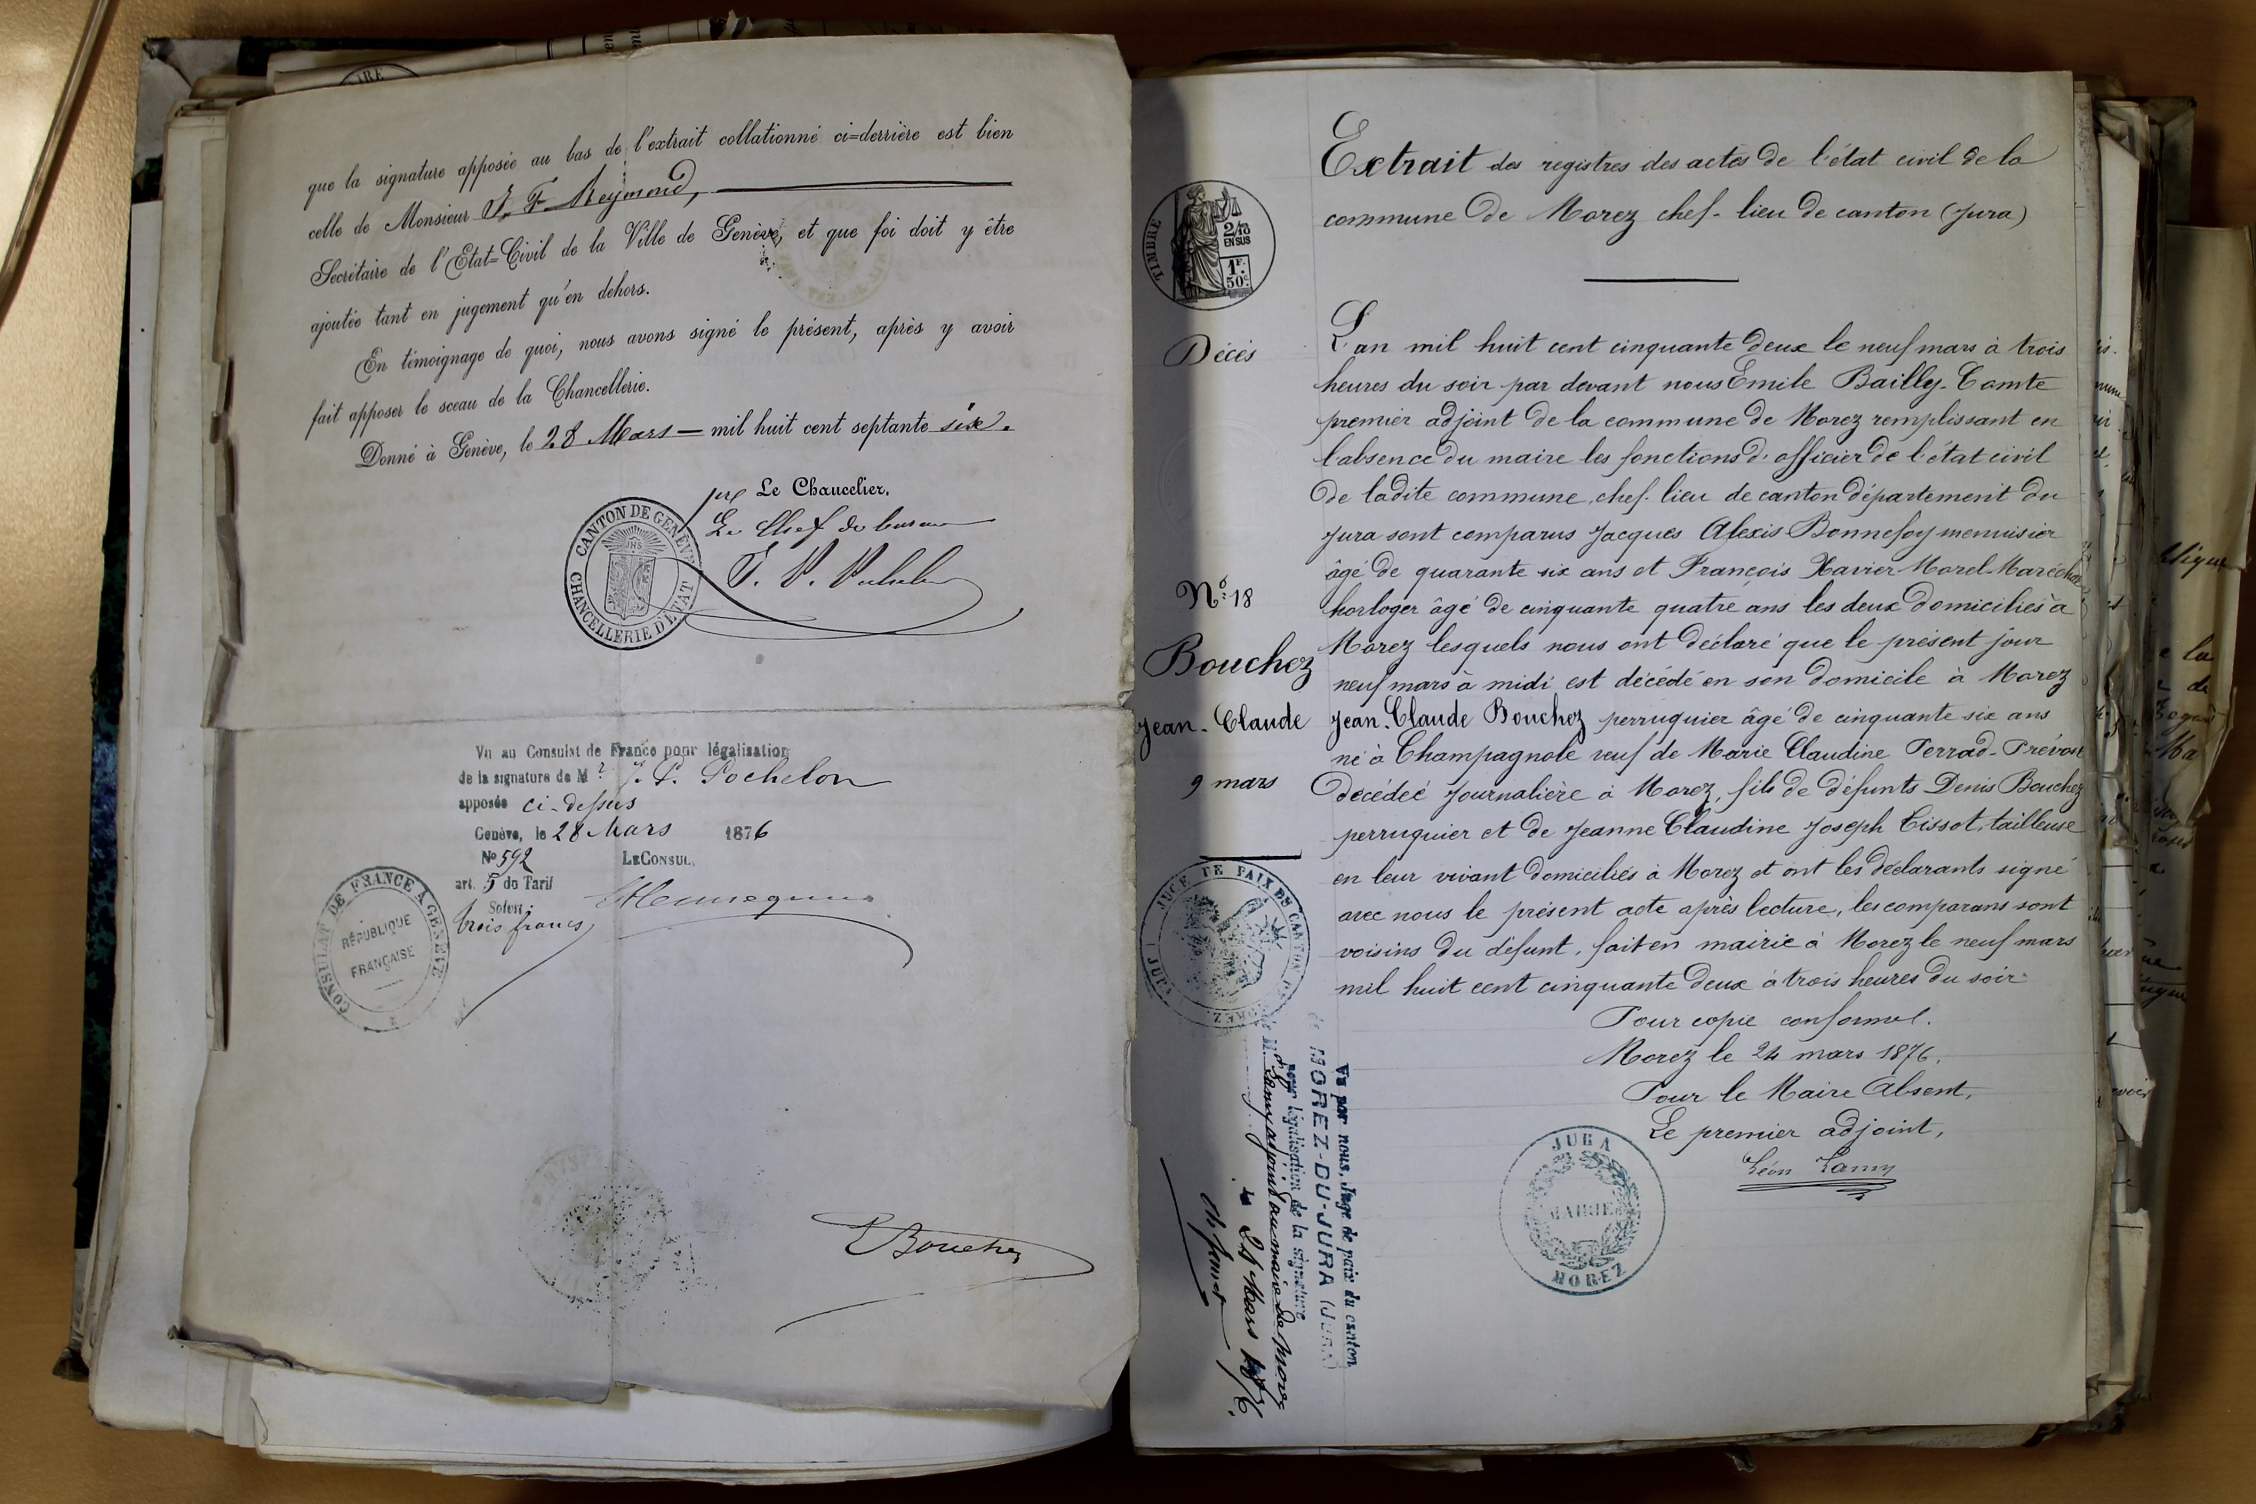 que la signature apposée au bas de l'extrait collationné ci=derrière est bien
celle de Monsieur J. F. Reymond,
Secrétaire de l'Etat=Civil de la Ville de Genève, et que foi doit y être
ajoutée tant en jugement qu'en dehors.
En témoignage de quoi, nous avons signé le présent, après y avoir
fait apposer le sceau de la Chancellerie.
Donné à Genève, le 28 Mars — mil huit cent septante six.
pr Le Chancelier,
Le Chef de bureau
CANTON DE GENÈVE
CHANCELLERIE D'ETAT
Vu au Consulat de France pour légalisation
de la signature de Mr J. P. Pochelon
apposée ci-dessus
Genève, le 28 Mars 1876
No 592 LE CONSUL,
art. 5 du Tarif
Soient:
trois francs
CONSULAT DE FRANCE A GENEVE
RÉPUBLIQUE
FRANÇAISE
Bouchez
TIMBRE
2/10
EN SUS
1F.
50c.
Extrait des registres des actes de l'état civil de la
commune de Morez chef-lieu de canton (Jura)
Décès
No 18
Bouchez
Jean-Claude
9 mars
L'an mil huit cent cinquante deux le neuf mars à trois
heures du soir par devant nous Emile Bailly-Comte
premier adjoint de la commune de Morez remplissant en
l'absence du maire les fonctions d'officier de l'état civil
de ladite commune, chef-lieu de canton département du
Jura sont comparus Jacques Alexis Bonnefoy menuisier
âgé de quarante six ans et François Xavier Morel-Maréchal
horloger âgé de cinquante quatre ans les deux domiciliés à
Morez lesquels nous ont déclaré que le présent jour
neuf mars à midi est décédé en son domicile à Morez
Jean-Claude Bouchez perruquier âgé de cinquante six ans
né à Champagnole veuf de Marie Claudine Perrad-Prévost
décédée journalière à Morez, fils de défunts Denis Bouchez
perruquier et de Jeanne Claudine Joseph Cissot, tailleuse
en leur vivant domiciliés à Morez et ont les déclarants signé
avec nous le présent acte après lecture, les comparans sont
voisins du défunt, fait en mairie à Morez le neuf mars
mil huit cent cinquante deux à trois heures du soir
Pour copie conforme.
Morez le 24 mars 1876.
Pour le Maire Absent,
Le premier adjoint,
Léon Lamy
JURA
MAIRIE
MOREZ
JUGE DE PAIX DU CANTON
JURA
Vu par nous, Juge de paix du canton
de MOREZ-DU-JURA (JURA)
pour légalisation de la signature
de M. Lamy adjoint au maire de Morez
le 24 Mars 1876.